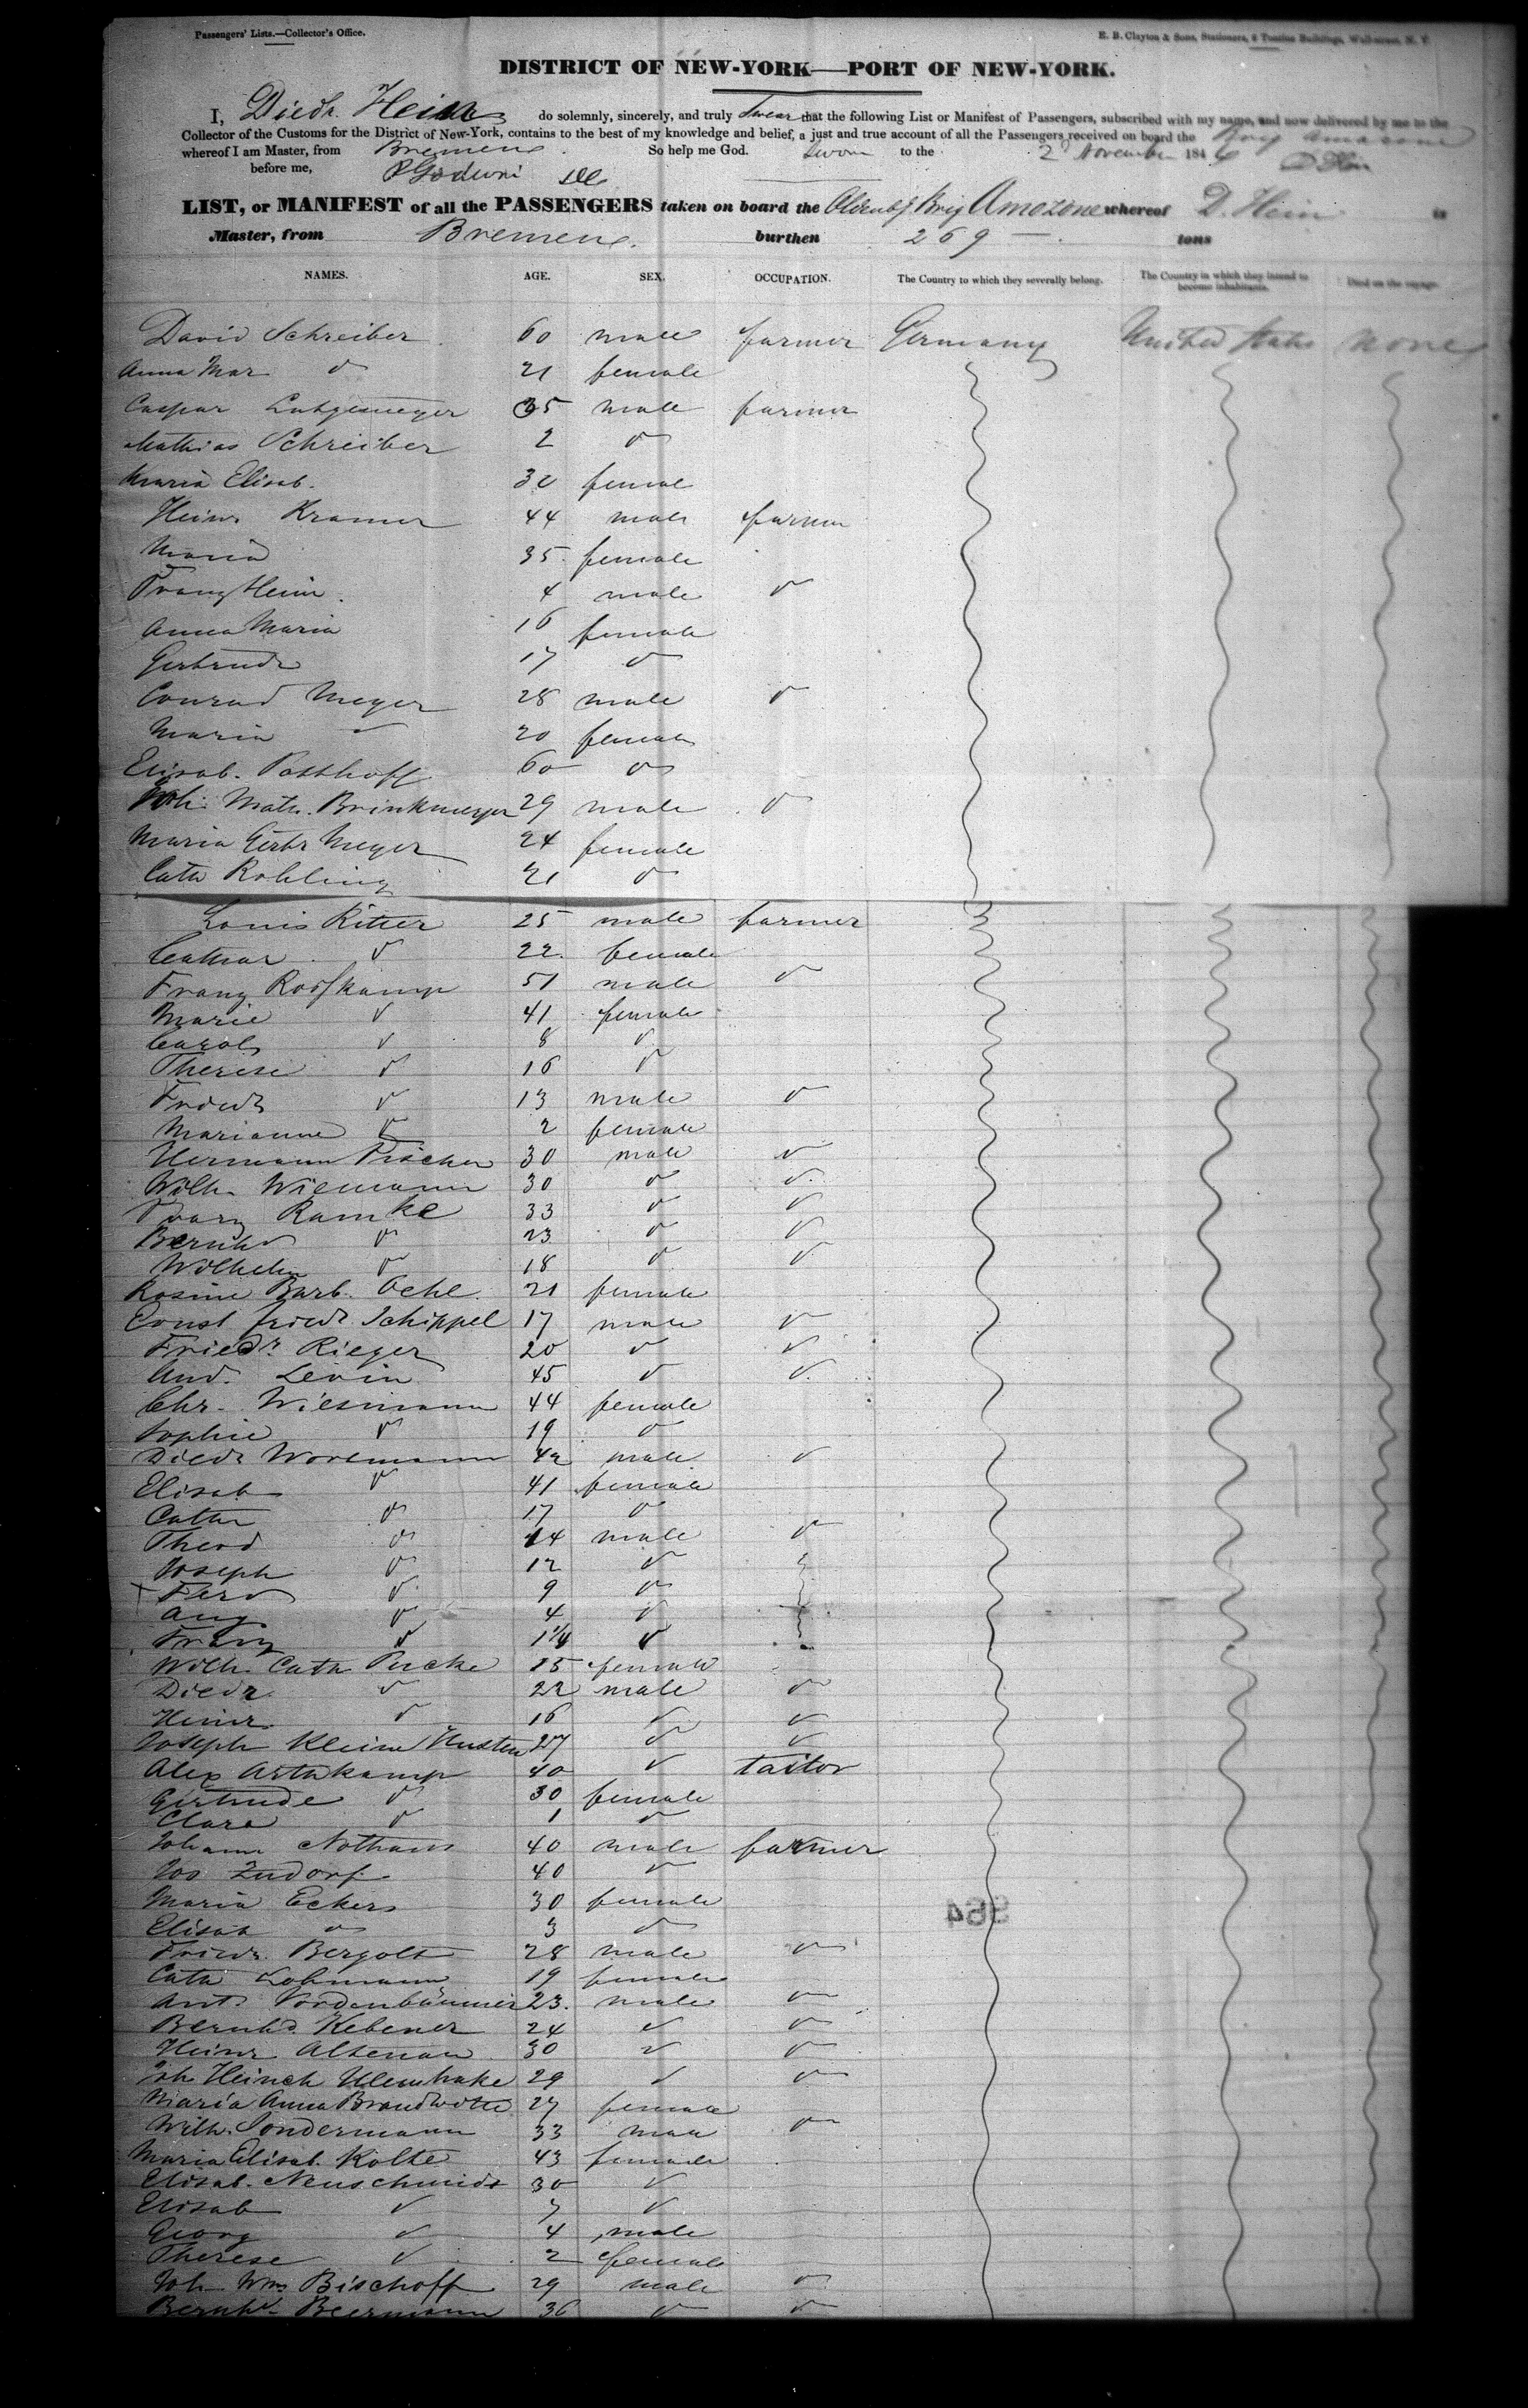 Passengers' Lists.—Collector's Office.
E. B. Clayton & Sons, Stationers, 8 Tontine Buildings, Wall-street, N. Y.
DISTRICT OF NEW-YORK—PORT OF NEW-YORK.
I, Diedr. Hein do solemnly, sincerely, and truly swear that the following List or Manifest of Passengers, subscribed with my name, and now delivered by me to the
Collector of the Customs for the District of New-York, contains to the best of my knowledge and belief, a just and true account of all the Passengers received on board the Brig Amazone
whereof I am Master, from Bremen. So help me God. Sworn to the 2 November 184 D Hein
before me,
LIST, or MANIFEST of all the PASSENGERS taken on board the Oldenbg Brig Amazone whereof D. Hein is
Master, from Bremen. burthen 269 — tons
NAMES. AGE. SEX. OCCUPATION. The Country to which they severally belong. The Country in which they intend to become inhabitants. Died on the voyage.
David Schreiber 60 male farmer Germany United States none
Anna Mar 21 female
Caspar 35 male farmer
Mathias Schreiber 2
Maria Elisab. 32 female
Heinr Kramer 44 male farmer
Maria 35 female
Franz Heinr. 4 male
Anna Maria 16 female
Gertrude 17
Conrad Meyer 28 male
Maria 20 female
Elisab. Posthoff 60
Joh. Math. Brinkmeyer 29 male
Maria Gertr Meyer 24 female
Cath Rohling 21
Louis Ritter 25 male farmer
Cathar 22 female
Franz Roofkamp 51 male
Marie 41 female
Carol 8
Therese 16
Friedr 13 male
Marianne 2 female
Hermann Fischer 30 male
Wilh. Wiemann 30
Franz Ramke 33
Bernhd 23
Wilhelm 18
Rosine Barb. Oehl. 21 female
Ernst Friedr. Schippel 17 male
Friedr. Rieger 20
And. Levin 45
Chr. Wiesmann 44 female
Sophie 19
Diedr Wortmann 42 male
Elisab 41 female
Cathr 17
Theod 14 male
Joseph 12
Ferd 9
Aug 4
Franz 1 1/4
Wilh. Cath Pucke 15 female
Diedr 22 male
Heinr. 16
Joseph Kleine 27
Alex Arthkamp 40 tailor
Gertrude 30 female
Clara 1
Johann Nothaus 40 male farmer
Jos Zudorf 40
Maria Eckers 30 female
Elisab 3
964
Friedr. Bergolt 28 male
Cath Lohmann 19 female
Ant. Vordenbäumer 23. male
Bernhd. Kebener 24
Heinr Altenau 30
Joh Heinch Ulenhake 29
Maria Anna Brandwitte 27 female
Wilh. Sondermann 33 male
Maria Elisab. Kolte 43 female
Elisab. Neuschmidt 30
Elisab 7
Georg 4 male
Therese 2 female
Joh Wm Bischoff 29 male
Bernhd. Beermann 36